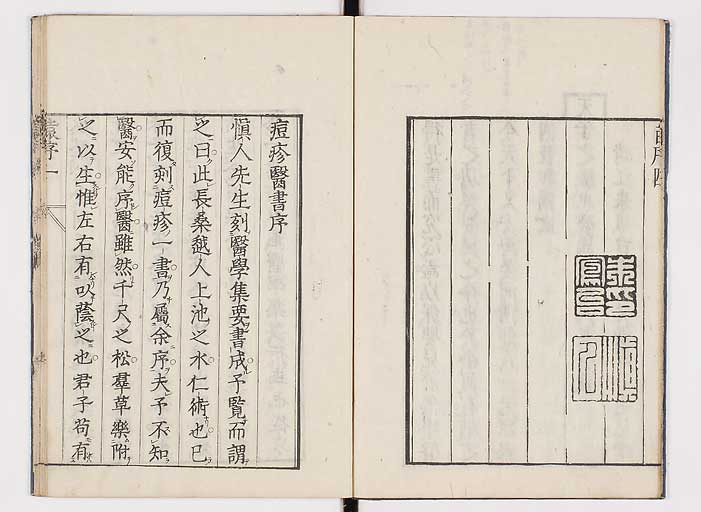 痘疹醫書序
愼人先生刻醫學集要書成予覽而謂
之曰此長桑越人上池之水仁術也已
而復刻痘疹一書乃屬余序夫予不知
醫安能序醫雖然千尺之松羣草樂附
之以生惟左右有以蔭之也君子苟有